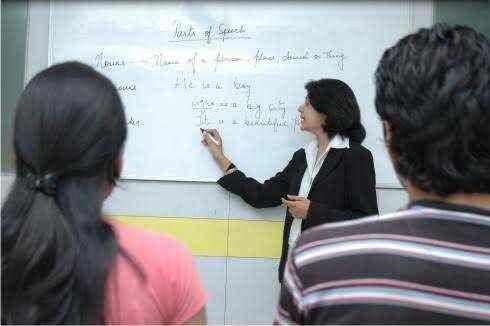 Parts of Speech
Nouns - Name of a person, place, animal or thing
He is a boy
Agra is a big city
It is a beautiful